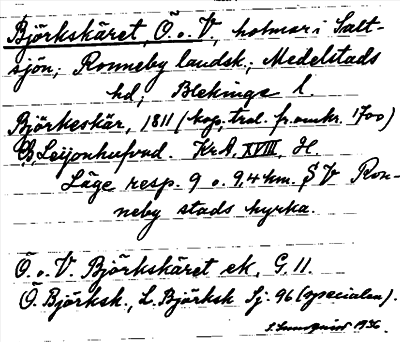 Björkskäret, Ö. o. V., holmar i Salt-
sjön; Ronneby landsk.; Medelstads
hd; Blekinge l.
Björkeskär, 1811 (kop. trol. fr. omkr. 1700)
B. Leijonhufvud. KrA, XVIII, H
Läge resp. 9 o. 9,4 km. S V Ron-
neby stads kyrka.
Ö. o. V. Björkskäret ek. G. 11.
Ö. Björksk., L. Björksk Sj. 96 (specialen).
1936